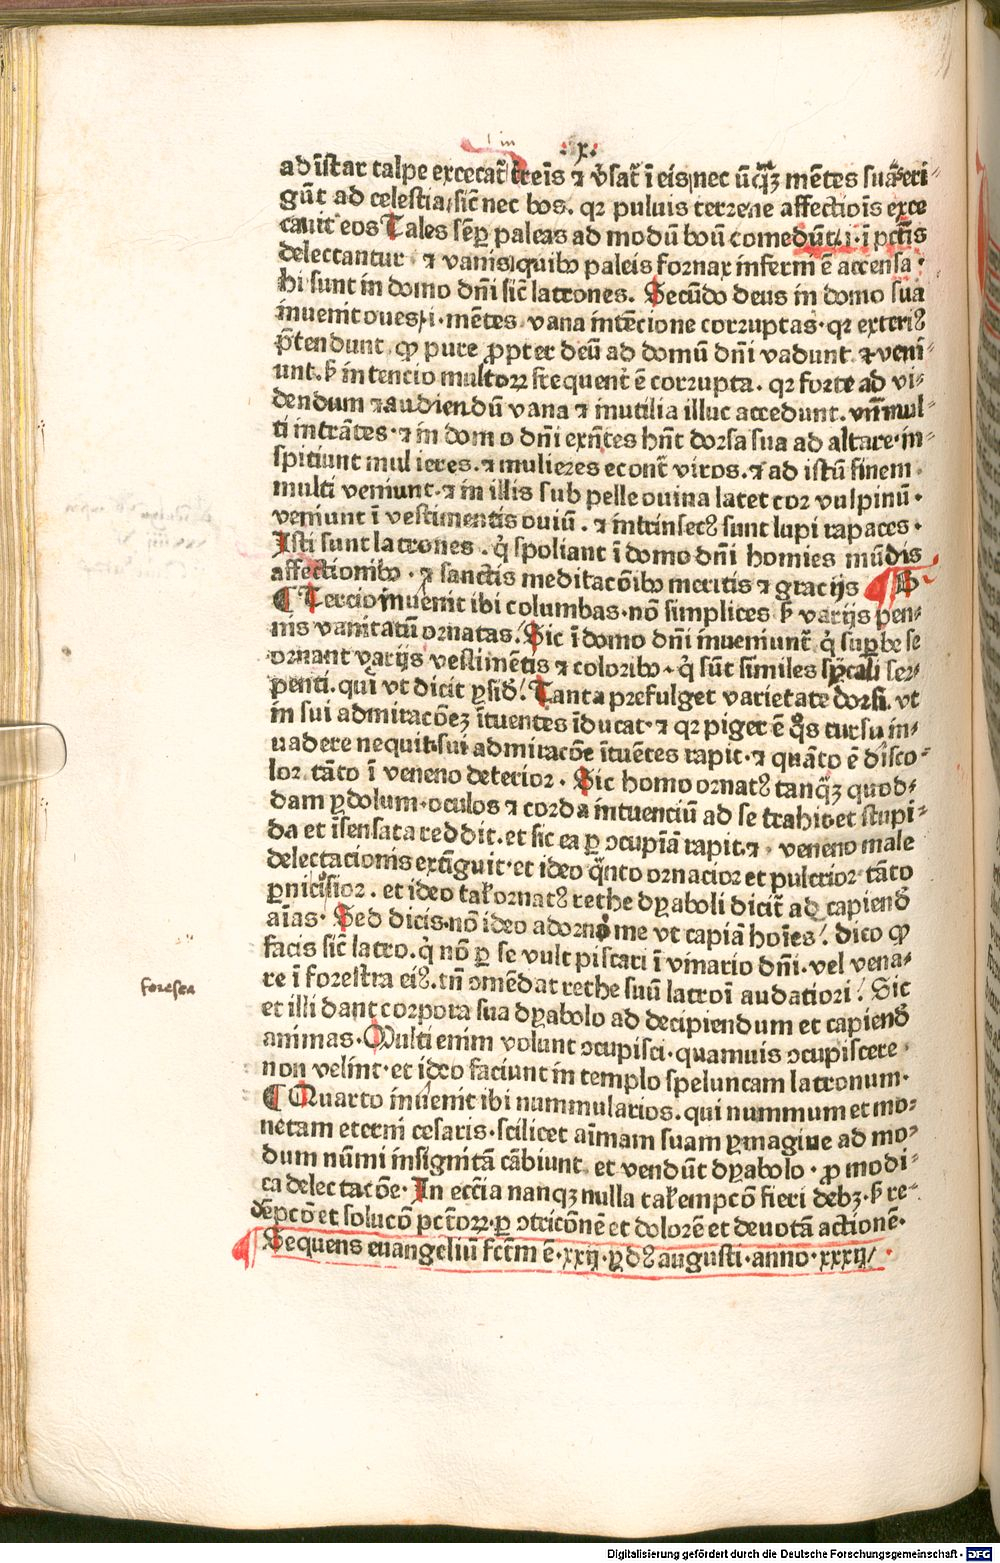 ·x·
ad īstar talpe excecat̄ t̄reīs ⁊ v̄sat̄ ī eis nec ūq̄ꝫ mētes suas eri⸗
gūt ad celestia, sic̄ nec bos. qꝛ puluis terrene affectiois exce
cauit eos Tales sēꝑ paleas ad modū boū comedūt. i. ī pctīs
delectantur ⁊ vanis, quibꝰ paleis fornax inferni ē accensa.
hi sunt in domo dn̄i sic̄ latrones. Secūdo deus in domo sua
inuenit oues, i. mētes vana intēcione corruptas. qꝛ exteriꝰ
p̄tendunt ꝙ pure ꝓpter deū ad domū dn̄i vadunt ⁊ veni⸗
unt. sꝫ intencio multoꝝ frequent̄ ē corrupta. qꝛ forte ad vi⸗
dendum ⁊ audiendū vana ⁊ inutilia illuc accedunt. vn̄ mul⸗
ti intrātes. ⁊ in domo dn̄i exn̄tes hn̄t dorsa sua ad altare. in⸗
spitiunt mulieres. ⁊ mulieres econt̄ viros. ⁊ ad istū finem
multi veniunt. ⁊ in illis sub pelle ouina latet cor vulpinū.
veniunt ī vestimentis ouiū. ⁊ intrinsecꝰ sunt lupi rapaces.
Isti sunt latrones. q̇ spoliant ī domo dn̄i homies mūdis
affectionibꝰ. ⁊ sanctis meditacōibꝰ meritis ⁊ gracijs B
¶ Tercio inuenit ibi columbas. nō simplices sꝫ varijs pen⸗
nis vanitatū ornatas. Sic ī domo dn̄i inueniunt̄ q̇ suꝑbe se
ornant varijs vestimētis ⁊ coloribꝰ. q̇ sūt similes sp̄cali ser⸗
penti. qui vt dicit ysid. Tanta prefulget varietate dorsi. vt
in sui admiracōeꝫ ītuentes īducat. ⁊ qꝛ piger ē q̊s cursu in⸗
uadere nequit, sui admiracōe ītuētes rapit. ⁊ quāto ē disco⸗
lor tāto ī veneno deterior. Sic homo ornatꝰ tanq̄ꝫ quod⸗
dam ydolum. oculos ⁊ corda intuenciū ad se trahit. et stupi⸗
da et īsensata reddit. et sic ea ꝑ ↄcupīā rapit. ⁊ veneno male
delectacionis extīguit. et ideo q̄nto ornacior et pulcrior tāto
ꝑniciosior. et ideo tal̄ ornatꝰ rethe dyaboli dicit̄ ad capiend̄
aīas. Sed dicis. nō ideo adorno me vt capiā hoīes. dico ꝙ
facis sic̄ latro. q̇ nō ꝑ se vult piscari ī viuario dn̄i. vel vena⸗
re ī forestra eiꝰ. tn̄ ↄmēdat rethe suū latroī audatiori. Sic
et illi dant corpora sua dyabolo ad decipiendum et capiend̄
animas. Multi enim volunt ↄcupisci. quamuis ↄcupiscere
non velint. et ideo faciunt in templo speluncam latronum.
¶ Quarto inuenit ibi nummularios. qui nummum et mo⸗
netam eterni cesaris. scilicet aīmam suam ymagine ad mo⸗
dum nūmi insignitā cābiunt. et vendūt dyabolo. ꝓ modi⸗
ca delectacōe. In eccīa nanqꝫ nulla tal̄ empcō fieri debꝫ. sꝫ re⸗
dēpcō et solucō pct̄oꝝ. ꝑ ↄtricōnē et dolorē et deuotā actionē.
Sequens euangeliū fct̄m ē. xxij. ydꝰ augusti. anno. xxxij
foresta